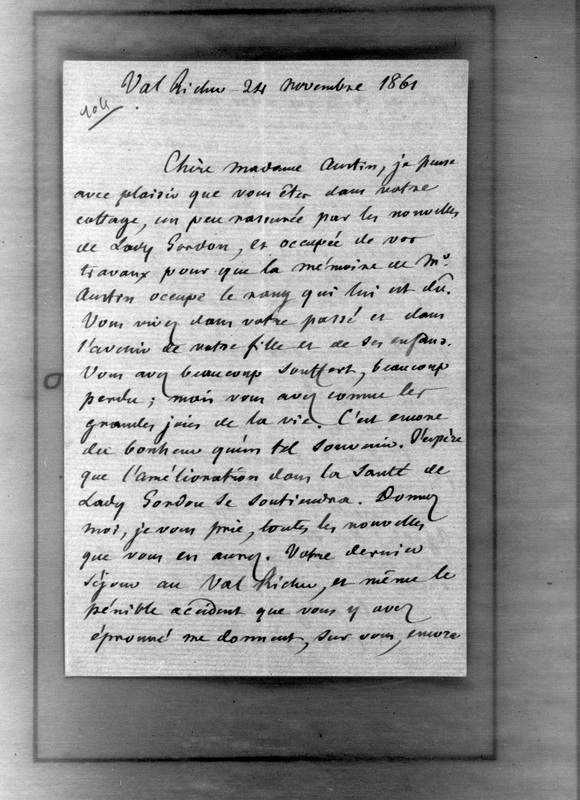 Val Richer 24 novembre 1861
104
Chère madame Austin, je pense
avec plaisir que vous êtes dans votre
cottage, un peu rassurée par les nouvelles
de Lady Gordon, et occupée de vos
travaux pour que la mémoire de Mr
Austin occupe le rang qui lui est dû.
Vous vivez dans votre passé et dans
l'avenir de votre fille et de ses enfans.
Vous avez beaucoup souffert, beaucoup
perdu ; mais vous avez connu les
grandes joies de la vie. C'est encore
du bonheur qu'un tel souvenir. J'espère
que l'amélioration dans la santé de
Lady Gordon se soutiendra. Donnez
moi, je vous prie, toutes les nouvelles
que vous en aurez. Votre dernier
séjour au Val Richer, et même le
pénible accident que vous y avez
éprouvé me donnent, sur vous, encore